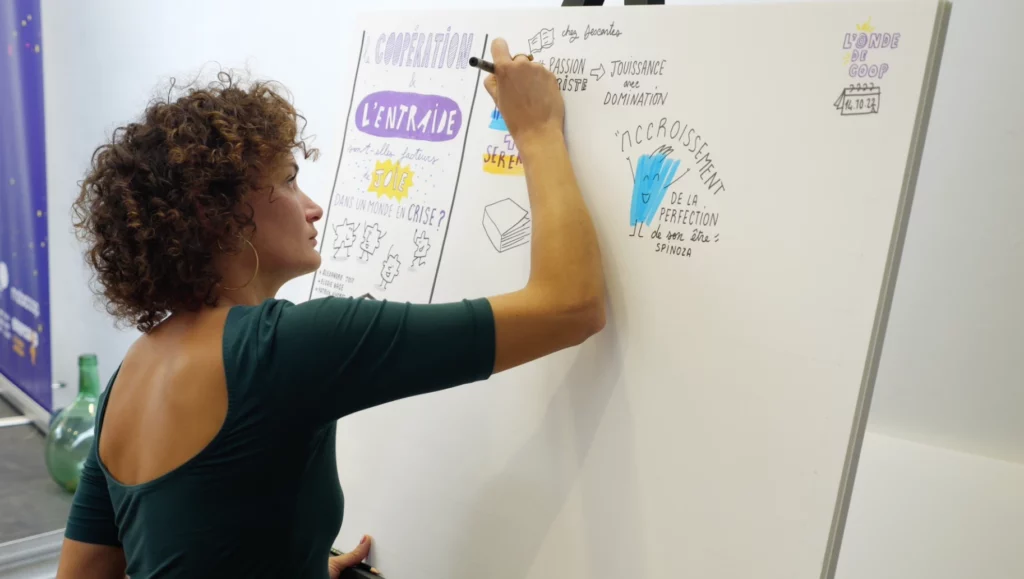 LA COOPÉRATION
&
L'ENTRAIDE
sont-elles facteurs
de JOIE
DANS UN MONDE EN CRISE ?
chez Descartes
PASSION
TRISTE
JOUISSANCE
avec
DOMINATION
+
"ACCROISSEMENT
DE LA
PERFECTION
de son être"
SPINOZA
L'ONDE
DE
COOP
14.10.22